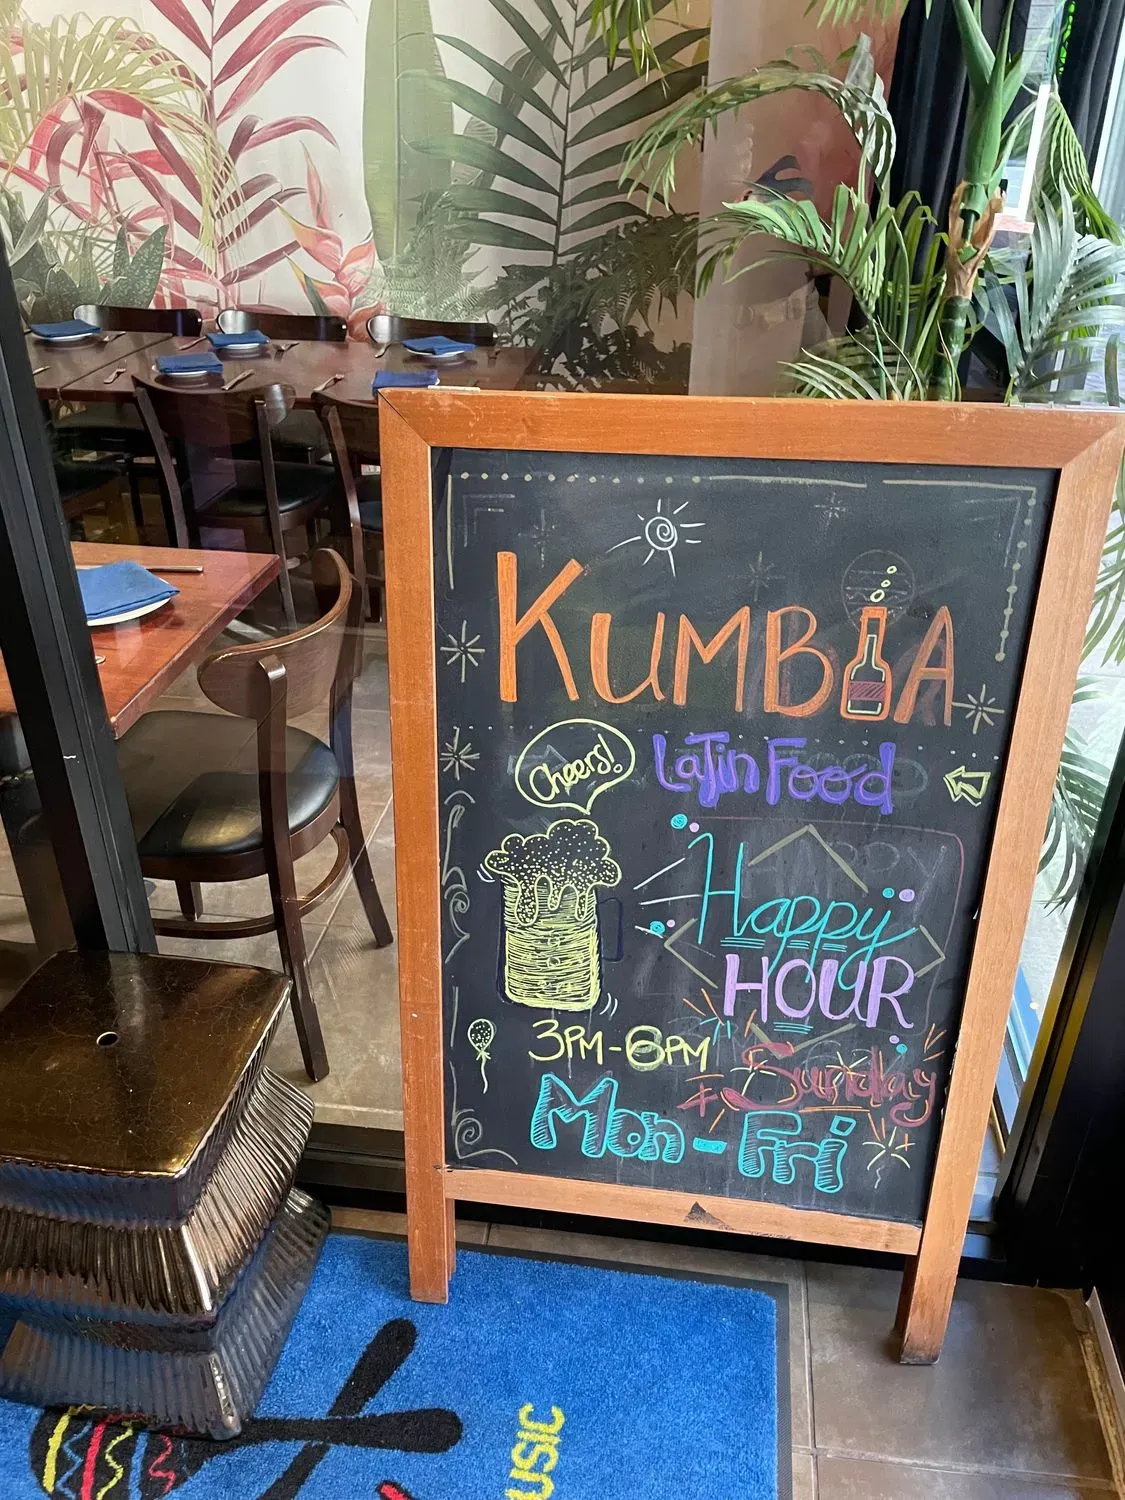 KUMBIA
Cheers!
LaTin Food
Happy
HOUR
3PM-6PM
Sunday
Mon-Fri
USIC